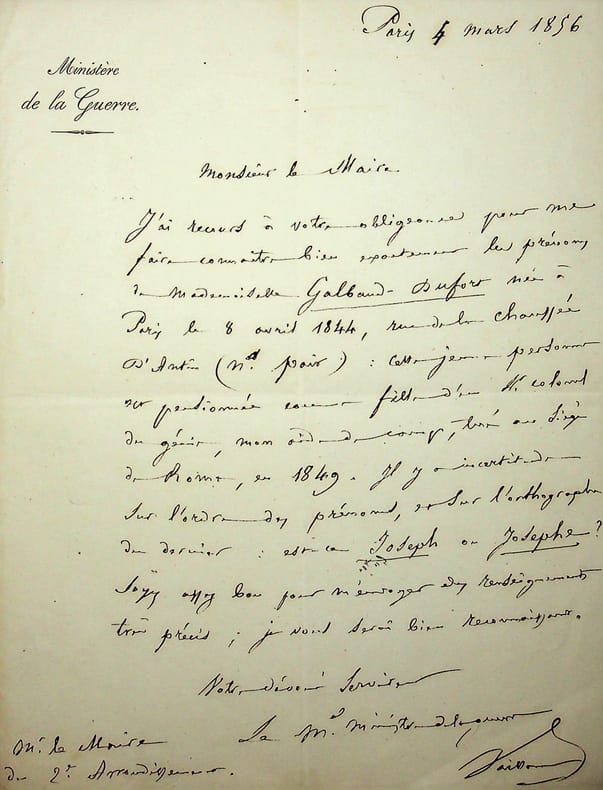 Paris 4 mars 1856
Ministère
de la Guerre.
Monsieur le Maire
J'ai recours à votre obligeance pour me
faire connaître bien exactement les prénoms
de Mademoiselle Galbaud-Dufort née à
Paris le 8 avril 1844, rue de la chaussée
D'Antin (nos pair) : cette jeune personne
est pensionnée comme fille d'un Lt colonel
du génie, mon aide de camp, tué au siège
de Rome, en 1849. Il y a incertitude
sur l'ordre des prénoms, et sur l'orthographe
du dernier : est-ce Joseph ou Josephe ?
Soyez assez bon pour m'envoyer des renseignements
très précis ; je vous serai bien reconnaissant.
Votre dévoué serviteur
Le Mal Ministre de la guerre
Vaillant
Mr le Maire
du 2e Arrondissement.